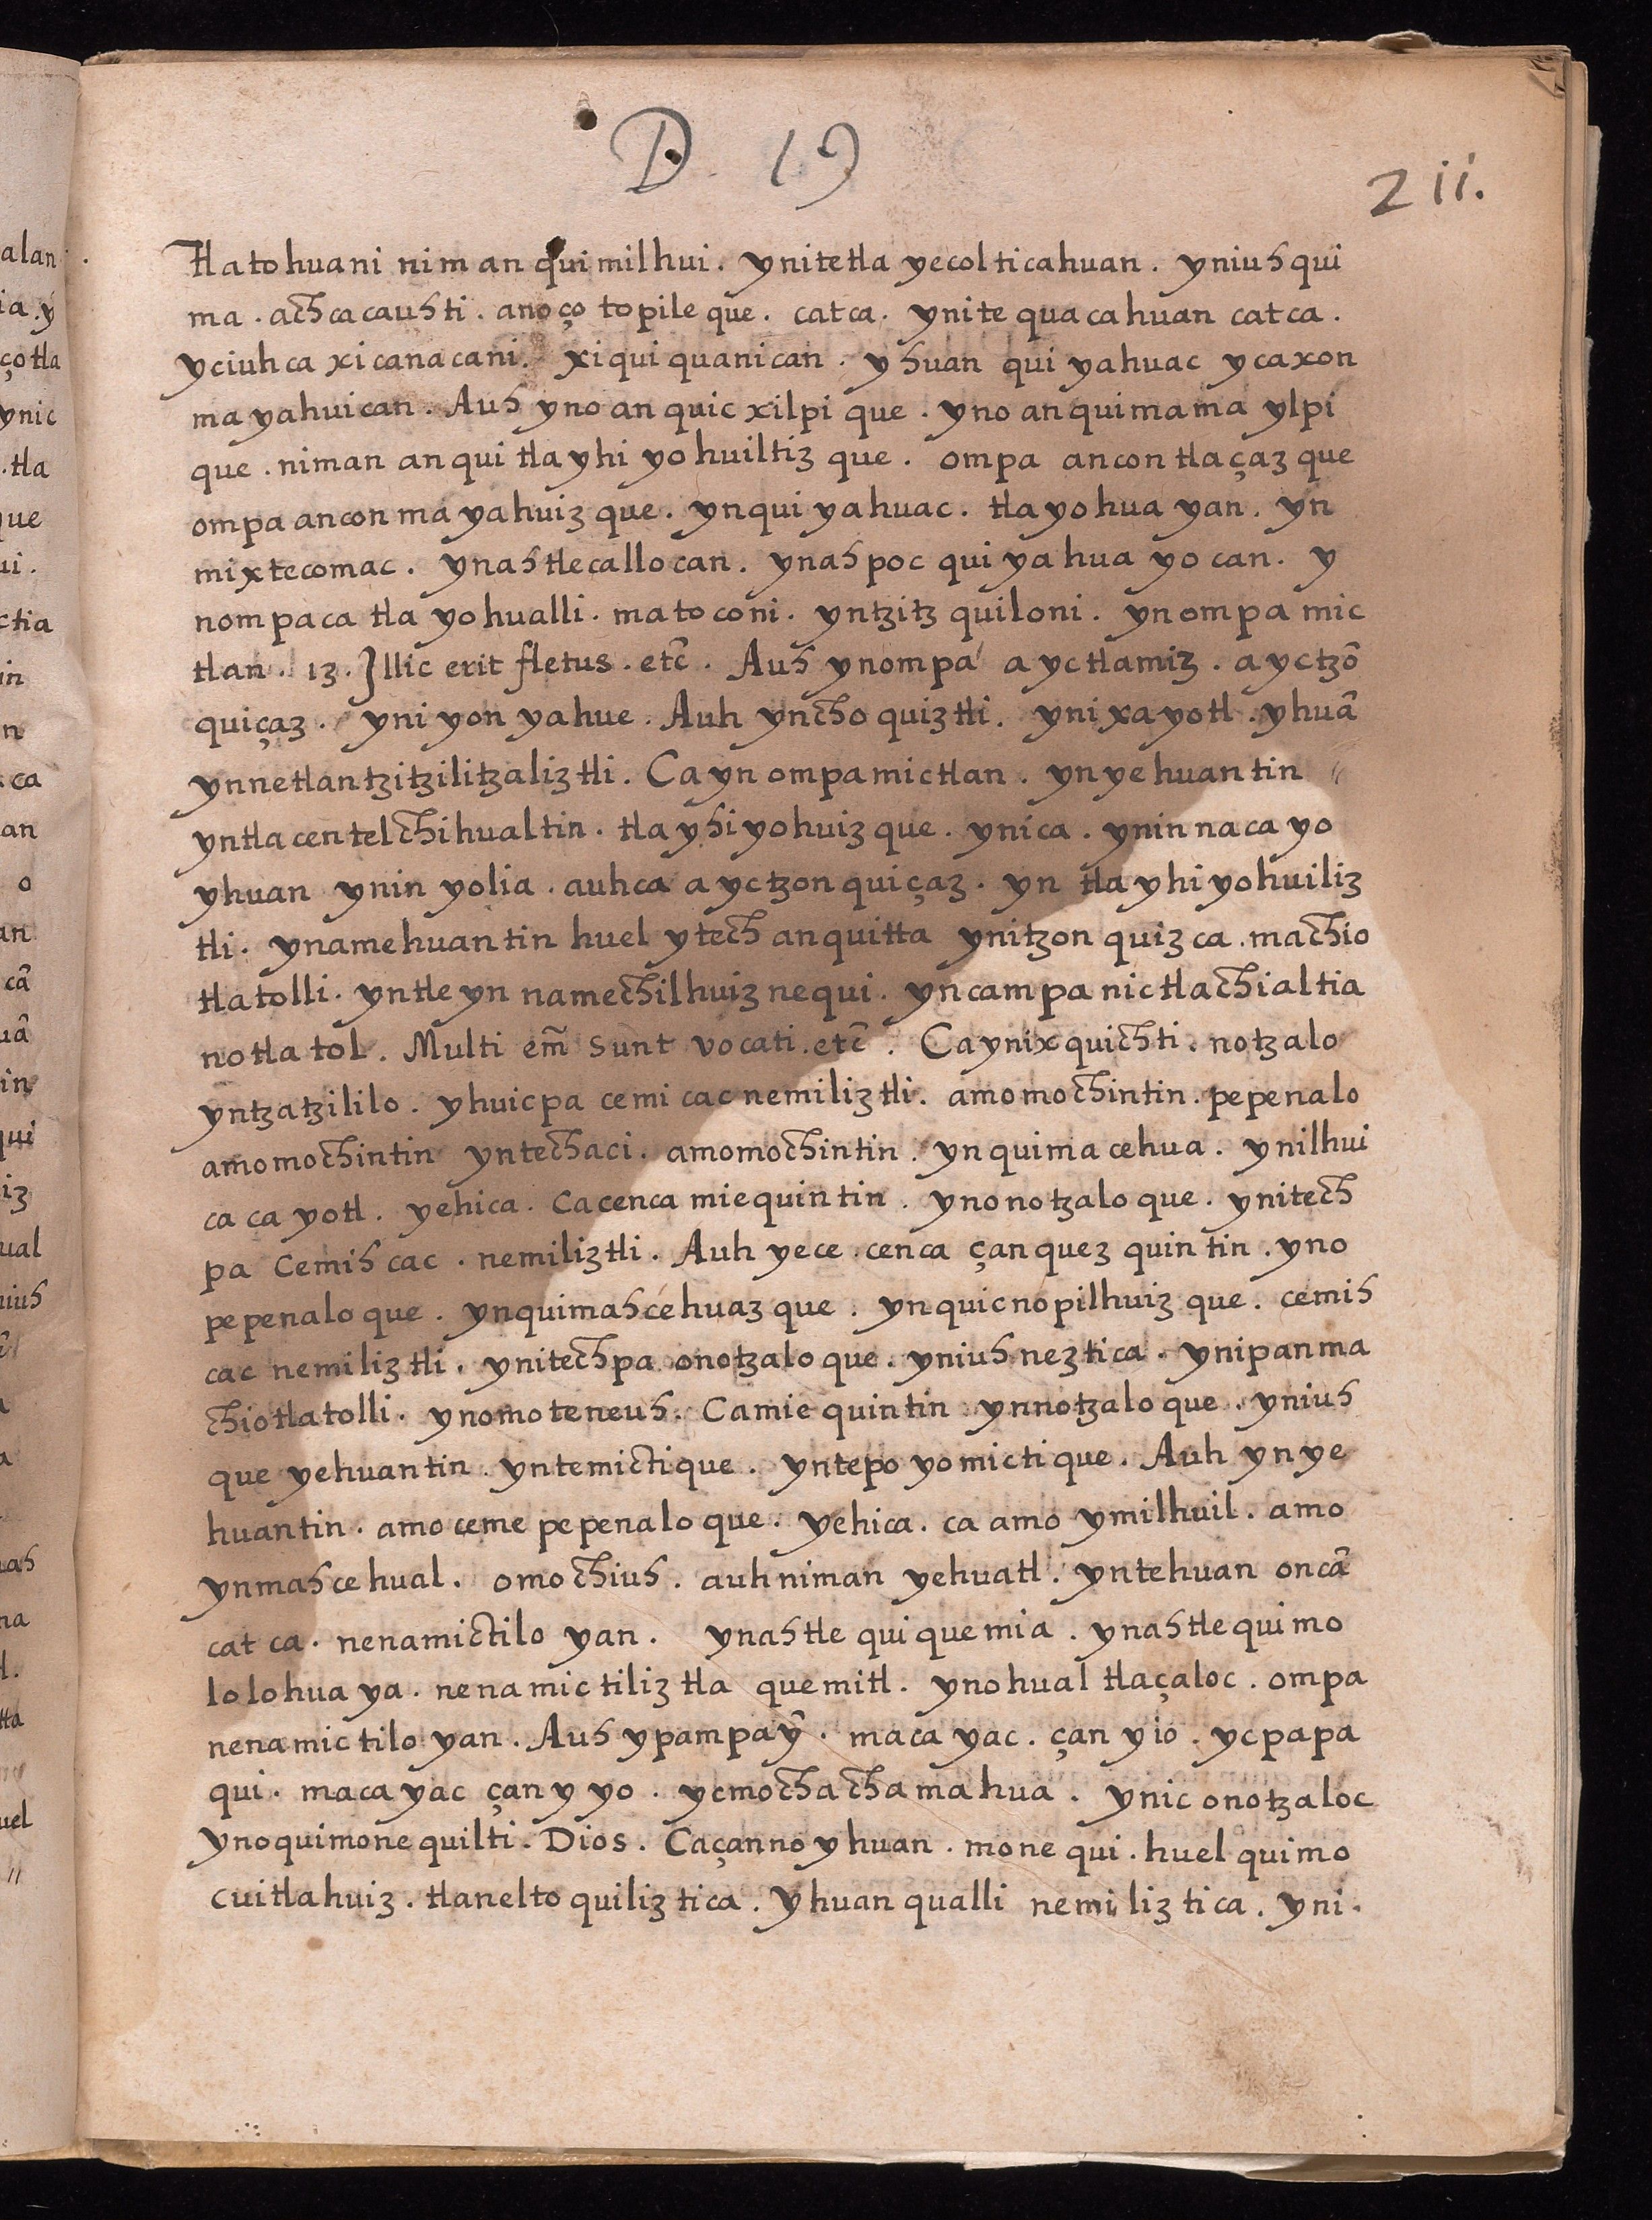 D. 19
211.
Tlatohuani niman quimilhui. ynitetlayecolticahuan. yniuhqui
ma. achcacauhti. anoço topileque. catca. ynitequacahuan catca.
yciuhca xicanacani. xiquiquanican. yhuan quiyahuac ycaxon
mayahuican. Auh yno anquicxilpique. yno anquimamaylpi
que. niman anquitlayhiyohuiltizque. ompa ancontlaçazque
ompa anconmayahuizque. ynquiyahuac. tlayohuayan. yn
mixtecomac. ynahtlecallocan. ynahpocquiyahuayocan. y
nompaca tlayohualli. matoconi. yntzitzquiloni. ynompa mic
tlan. 13. Illic erit fletus. etc̃. Auh ynompa ayctlamiz. ayctzõ
quiçaz. yniyonyahue. Auh ynchoquiztli. ynixayotl. yhuã
ynnetlantzitzilitzaliztli. Ca yn ompa mictlan. ynyehuantin //
yntlacentelchihualtin. tlayhiyohuizque. ynica. ynin nacayo
yhuan ynin yolia. auhca ayctzonquiçaz. yn tlayhiyohuiliz
tli. ynamehuantin huel ytech anquitta ynitzonquizca. machio
tlatolli. yntleyn namechilhuiznequi. yncampa nictlachialtia
notlatol. Multi em̃ sunt vocati. etc̃. Caynixquichti. notzalo
yntzatzililo. yhuicpa cemicac nemiliztli. amomochintin. pepenalo
amomochintin yntechaci. amomochintin. ynquimacehua. ynilhui
cacayotl. yehica. cacenca miequintin. ynonotzaloque. ynitech
pa cemihcac. nemiliztli. Auh yece. cenca çanquezquintin. yno
pepenaloque. ynquimahcehuazque. ynquicnopilhuizque. cemih
cac nemiliztli. ynitechpa onotzaloque. yniuh neztica. ynipanma
chiotlatolli. ynomoteneuh. Camiequintin ynnotzaloque. yniuh
que yehuantin. yntemictique. yntepoyomictique. Auh ynye
huantin. amo ceme pepenaloque. yehica. ca amo ymilhuil. amo
ynmahcehual. omochiuh. auhniman yehuatl. yntehuan oncã
catca. nenamictiloyan. ynahtle quiquemia. ynahtlequimo
lolohuaya. nenamictiliztlaquemitl. ynohualtlaçaloc. ompa
nenamictiloyan. Auh ypampaỹ. macayac. çanyio. ycpapa
qui. macayac çanyyo. ycmochachamahua. ynic onotzaloc
ynoquimonequilti. Dios. Caçannoyhuan. monequi. huel quimo
cuitlahuiz. tlaneltoquiliztica. yhuan qualli nemiliztica. yni.